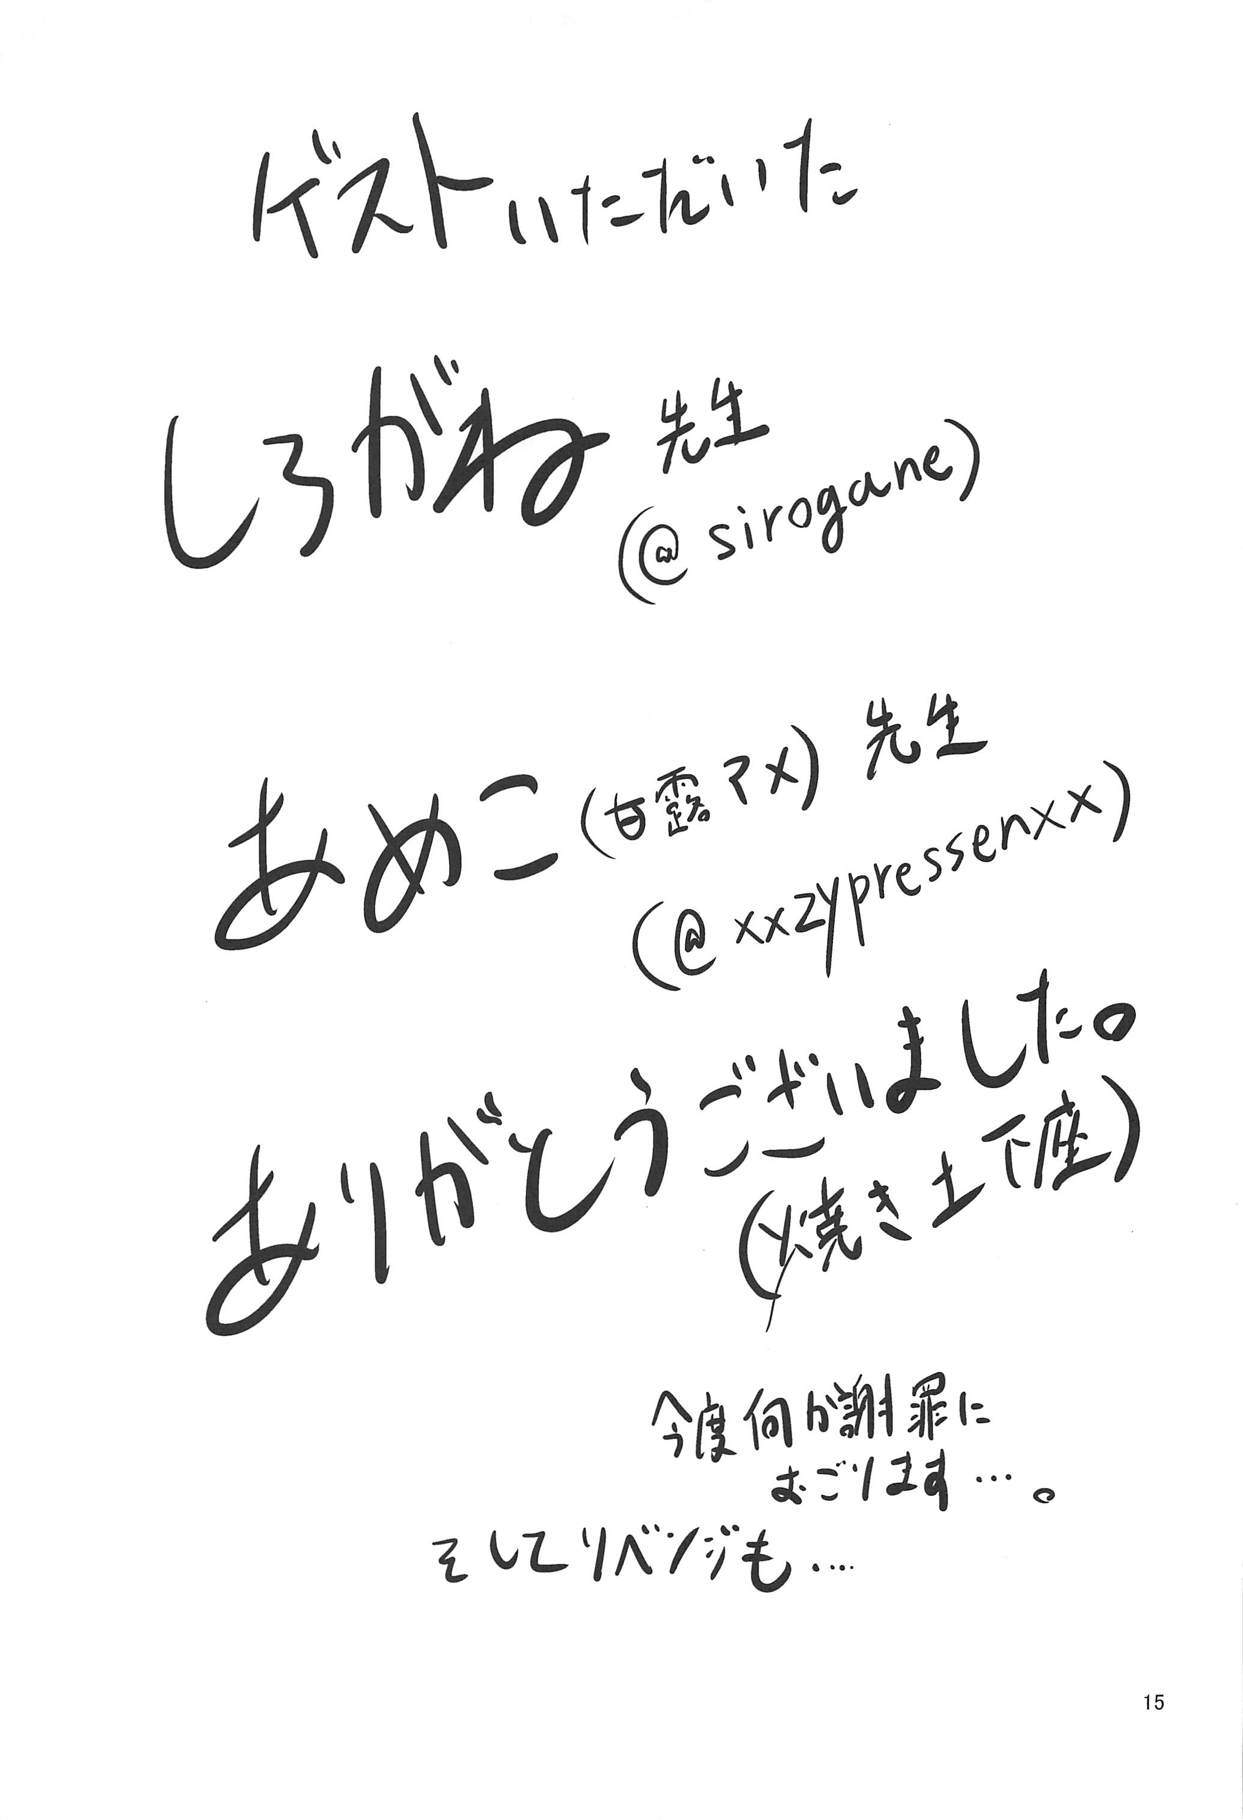 ゲストいただいた
しろがね先生
(@sirogane)
あめこ(甘露アメ)先生
(@xxzypressenxx)
ありがとうございました。
(焼き土下座)
今度何か謝罪に
おごります…。
そしてリベンジも….
15